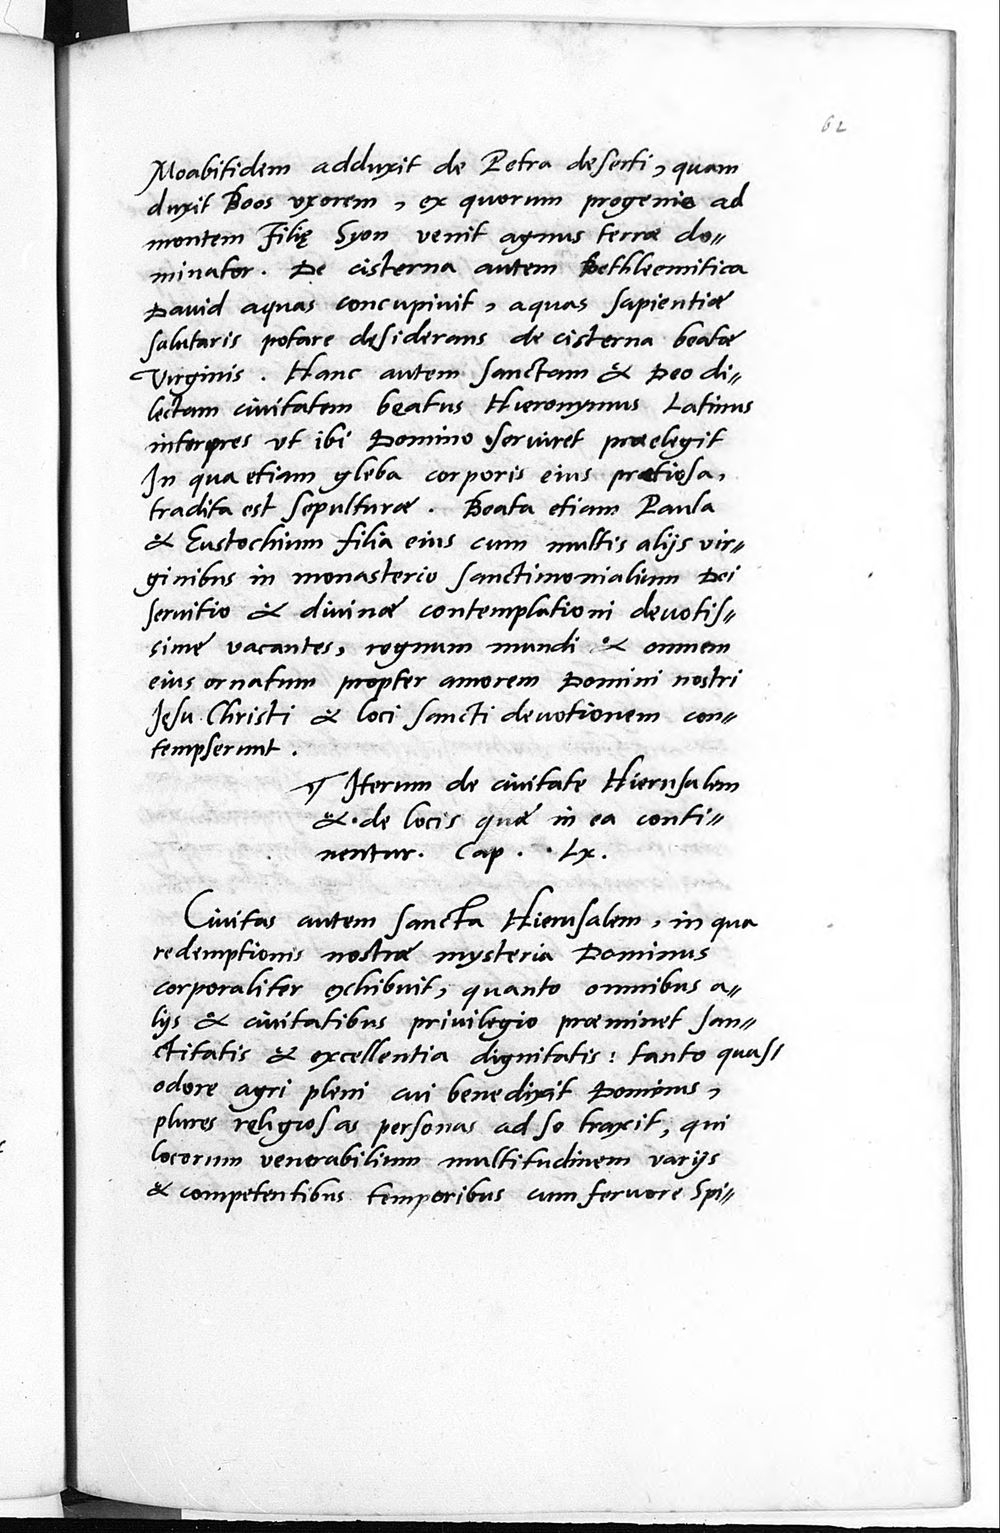 62
Moabitidem adduxit de Petra deserti, quam
duxit Boos uxorem, ex quorum progenie ad
montem Filię Syon venit agnus terræ do„
minator. De cisterna autem Bethleemitica
David aquas concupivit, aquas sapientiæ
salutaris potare desiderans de cisterna beatæ
Virginis. Hanc autem sanctam & Deo di„
lectam civitatem beatus Hieronymus Latinus
interpres ut ibi Domino serviret præelegit
In qua etiam gleba corporis eius prætiosa,
tradita est sepulturæ. Beata etiam Paula
& Eustochium filia eius cum multis alijs vir„
ginibus in monasterio sanctimonialium Dei
servitio & divinæ contemplationi devotis„
simę vacantes, regnum mundi & omnem
eius ornatum propter amorem Domini nostri
Jesu Christi & loci sancti devotionem con„
tempserunt.
¶ Iterum de civitate Hierusalem
&.de locis quæ in ea conti„
nentur. Cap. . Lx.
Civitas autem sancta Hierusalem, in qua
redemptionis nostræ mysteria Dominus
corporaliter exhibuit, quanto omnibus a„
lijs & civitatibus privilegio præminet san„
ctitatis & excellentia dignitatis: tanto quasi
odore agri pleni cui benedixit Dominus,
plures religiosas personas ad se traxit, qui
locorum venerabilium multitudinem varijs
& competentibus temporibus cum fervore Spi„